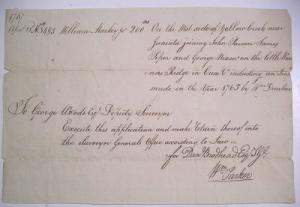 1767
No 3493 William Mackey for 200 as On the West side of Yellow Creek near
Juniata joining John Parson James
Piper and George Mason on the little
Ridge in Cum Cy including an
made in the Year 1763 by Wm Dunbar
To George Woods Esq Deputy Surveyor
Execute this application and make Return thereof into
the Surveyor Generals Office according to Law
for Danl Brodhead Esq S.G.
Wm Parker